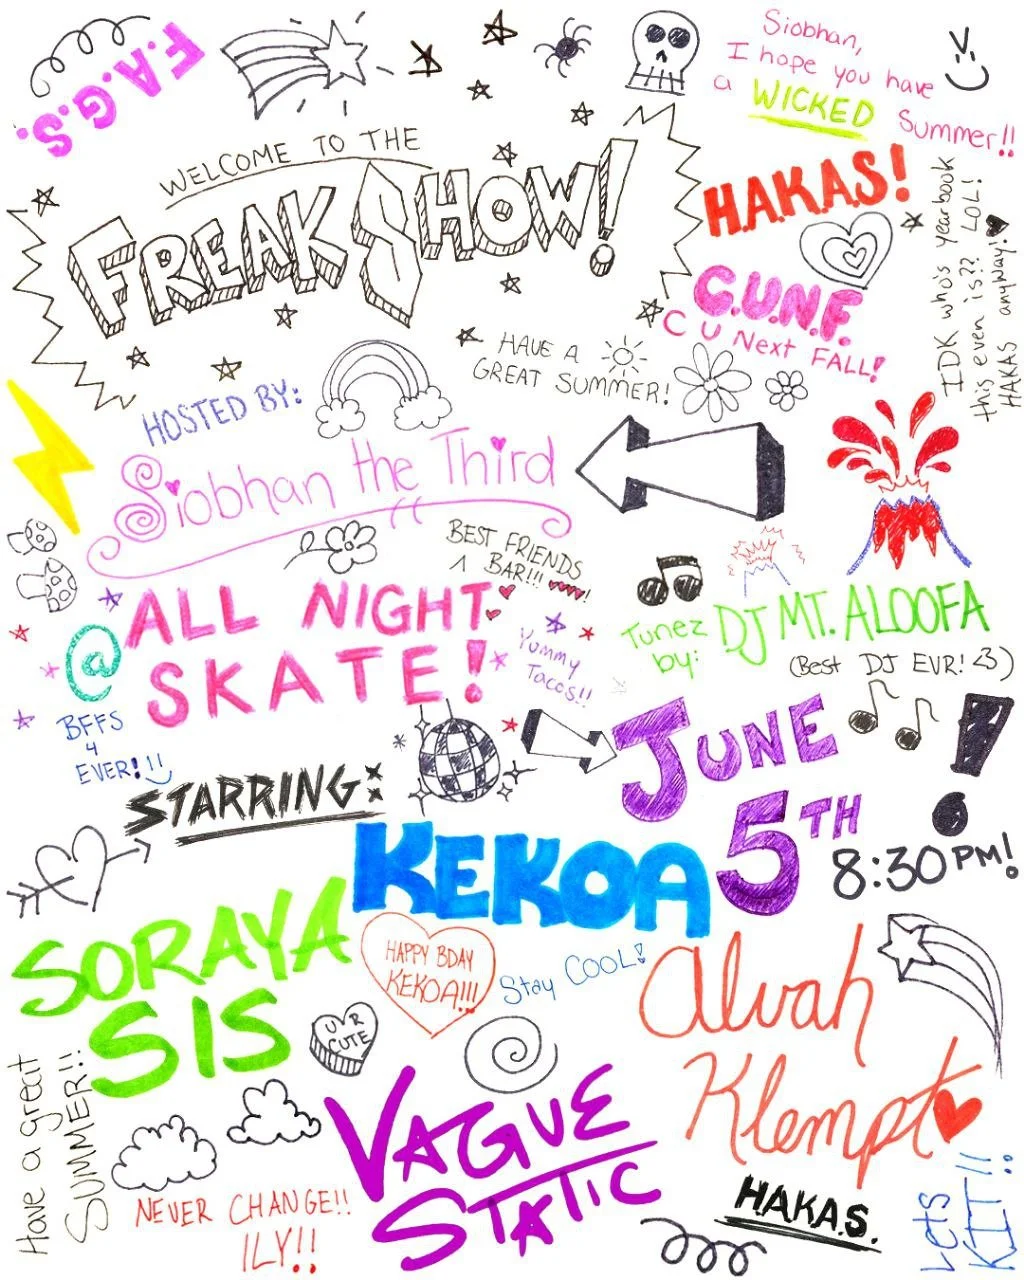 F.A.G.S.
Siobhan,
I hope you have
a WICKED
Summer!!
WELCOME TO THE
FREAK SHOW!
H.A.K.A.S!
IDK who's yearbook
this even is?? LOL!
HAKAS anyway!
C.U.N.F.
C U Next FALL!
HAVE A
GREAT SUMMER!
HOSTED BY:
Siobhan the Third
BEST FRIENDS
BAR!!!
@
ALL NIGHT
SKATE!
Yummy
Tacos!!
Tunez
by:
DJ MT. ALOOFA
(Best DJ EVR! <3)
BFFS
4
EVER!!!
JUNE
5TH
8:30PM!
STARRING:
KEKOA
SORAYA
SIS
HAPPY BDAY
KEKOA!!!
Stay COOL!
Alvah
Klempt
U R
CUTE
Have a great
SUMMER!!
VAGUE
STATIC
NEVER CHANGE!!
ILY!!
H.A.K.A.S.
Lets
KIT!!